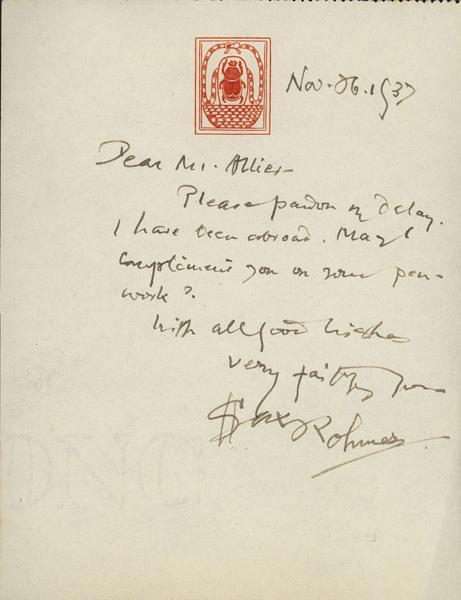 Nov. 26. 1937
Dear Mr. Allier–
Please pardon my delay.
I have been abroad. May I
compliment you on your pen-
work?
With all good wishes
very faithfully yours
Sax Rohmer